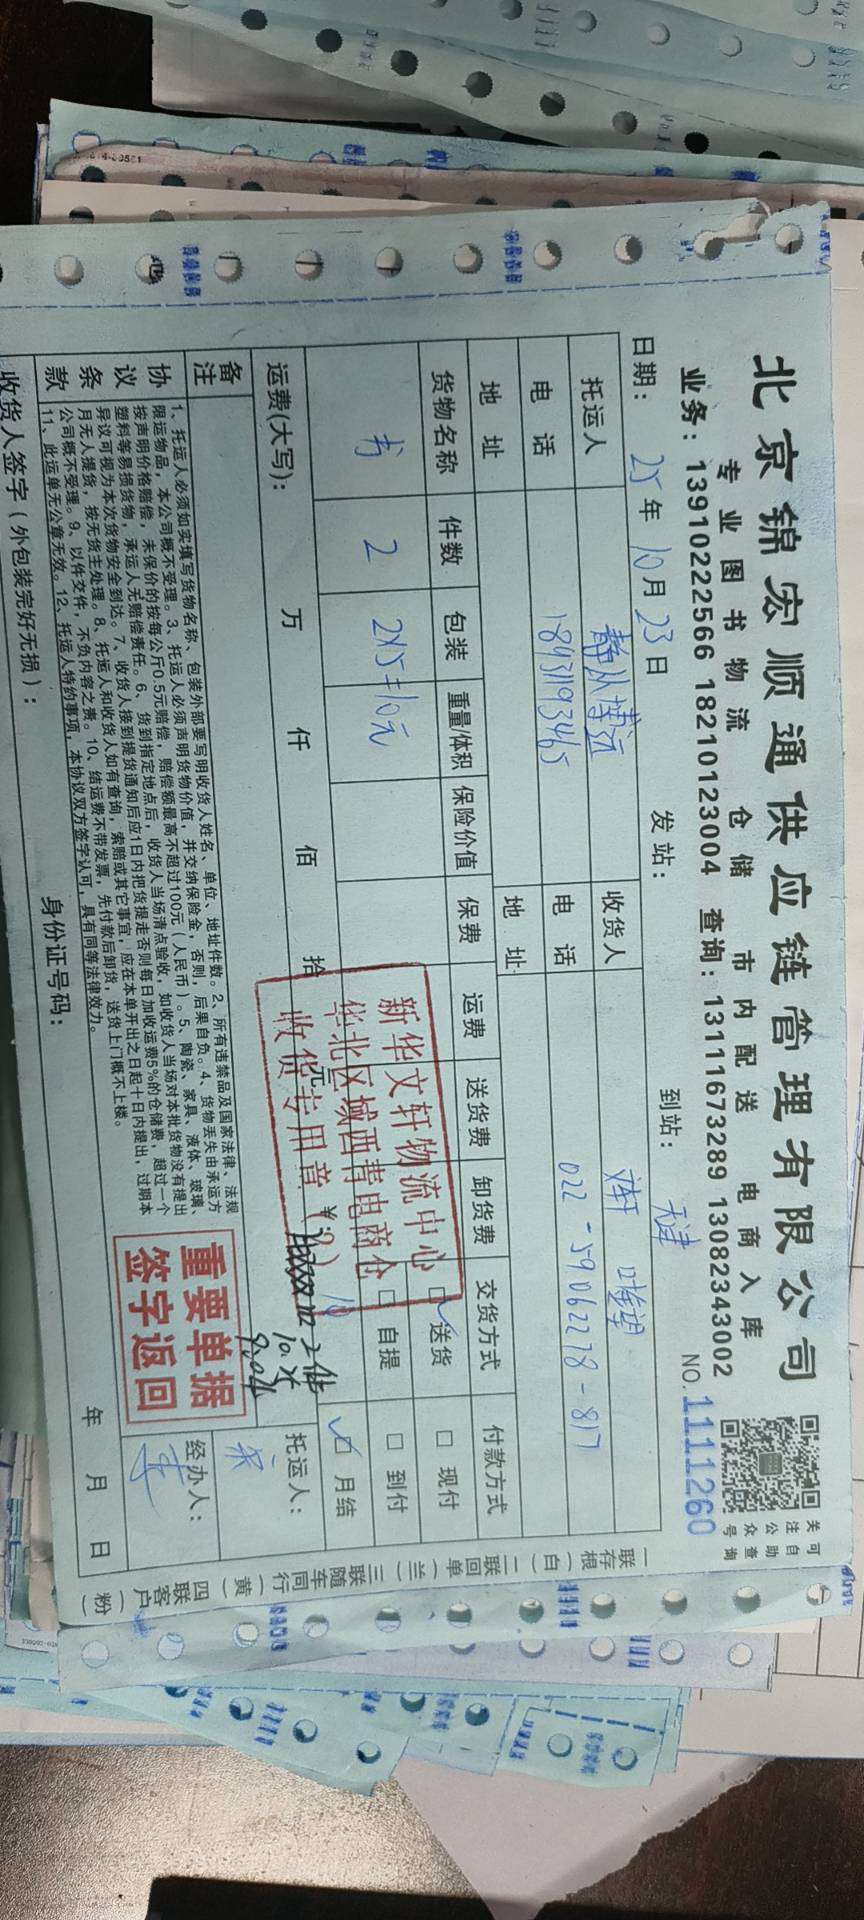 北京锦宏顺通供应链管理有限公司
专业图书物流 仓储 市内配送 电商入库
业务：13910222566 18210123004 查询：13111673289 13082343002
关注公众号
可自助查询
日期：25年10月23日 发站： 到站：天津 NO.11111260
托运人 静从博远 收货人
电话 18431193465 电话 022-59062278-817
地址 地址
货物名称 件数 包装 重量/体积 保险价值 保费 运费 送货费 卸货费 交货方式 付款方式
书 2 2×5=10元 送货 自提 现付 到付 月结
运费(大写)： 万 仟 佰 拾 元 ￥: 10
新华文轩物流中心
华北区域西青电商仓
收货专用章(2)
2件
10.25
备注
重要单据
签字返回
托运人：
经办人：
协议条款
1、托运人必须如实填写货物名称、包装外部要写明收货人姓名、单位、地址件数。2、所有违禁品及国家法律、法规
限运物品，本公司概不受理。3、托运人必须声明货物价值，并交纳保险金，否则，后果自负。4、货物丢失由承运方
按声明价格赔偿，未保价的按每公斤0.5元赔偿，赔偿额最高不超过100元（人民币）。5、陶瓷、家具、液体、玻璃、
塑料等易损货物，承运人无赔偿责任。6、货到指定地点后，收货人当场清点验收，如收货人当场对本批货物没有提出
异议可视为本次货物安全到达。7、收货人接到提货通知后应1日内把货提走否则每日加收运费5%的仓储费，超过一个
月无人提货，按无货主处理。8、托运人和收货人如有查询，索赔或其它事宜，应在本单开出之日起十日内提出，过期本
公司概不受理。9、以件交件，不负内容之责。10、结运费不带发票，先付款后卸货，送货上门概不上楼。
11、此运单无公章无效。12、托运人特约事项，本协议双方签字认可，具有同等法律效力。
收货人签字（外包装完好无损）： 身份证号码： 年 月 日
一联存根（白） 二联回单（兰） 三联随车同行（黄） 四联客户（粉）